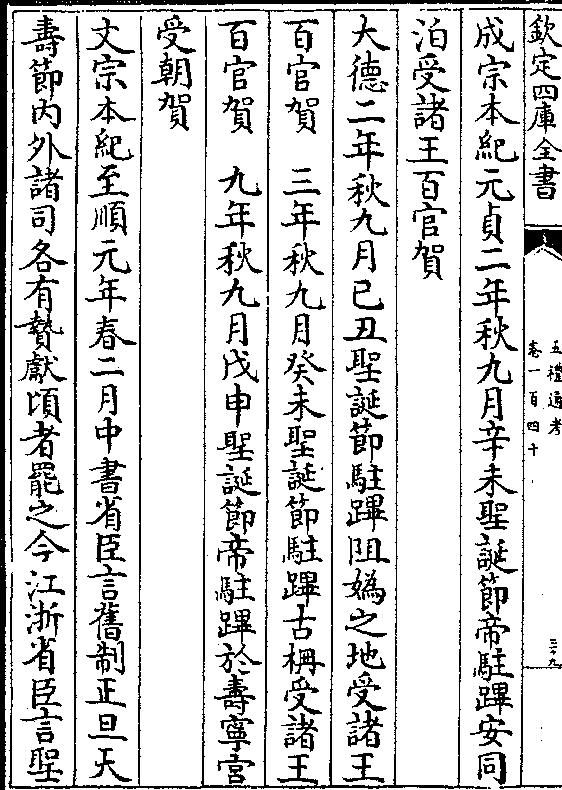 欽定四庫全書
五禮通考
卷一百四十
三十九
成宗本紀元貞二年秋九月辛未聖誕節帝駐蹕安同
泊受諸王百官賀
大德二年秋九月己丑聖誕節駐蹕阻媯之地受諸王
百官賀　三年秋九月癸未聖誕節駐蹕古柵受諸王
百官賀　九年秋九月戊申聖誕節帝駐蹕於壽寧宮
受朝賀
文宗本紀至順元年春二月中書省臣言舊制正旦天
壽節內外諸司各有贄獻頃者罷之今江浙省臣言聖